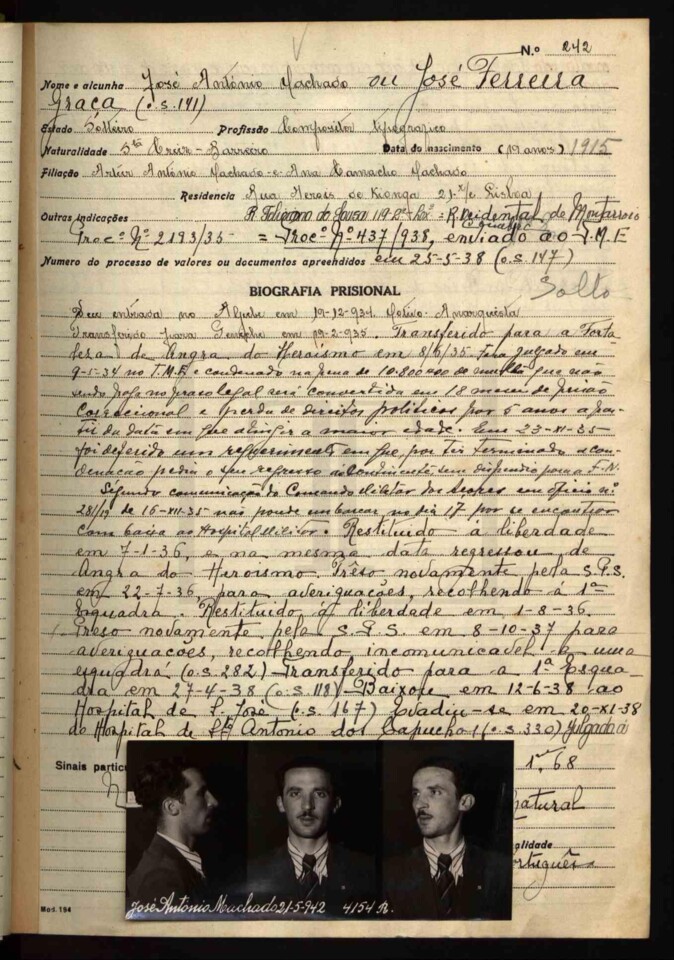 N.º 242
Nome e alcunha José António Machado ou José Ferreira
Graça (o.s. 141)
Estado Solteiro Profissão Compositor tipografico
Naturalidade Sta Cruz-Barreiro Data do nascimento (19 anos) 1915
Filiação Artur António Machado-e-Ana Camacho Machado
Residencia Rua Herois de Kionga 21-x/c Lisboa
Outras indicações R. do Sousa 119-2º = R. Ocidental de Montarroio
Procº Nº 2193/35 = Procº Nº 437/938, enviado ao T.M.E
Numero do processo de valores ou documentos apreendidos em 25-5-38 (o.s. 147)
BIOGRAFIA PRISIONAL Solto
Deu entrada no Aljube em 19-12-934. Motivo-Anarquista
Transferido para Peniche em 19-2-935. Transferido para a Forta
leza de Angra do Heroismo em 8/6/35. julgado em
9-1-34 no T.M.E. e condenado na pena de 10.800$00 de multa que não
sendo paga no prazo legal será convertida em 18 meses de prisão
correccional e perda de direitos politicos por 5 anos a par-
tir da data em que atingir a maior idade. Em 23-XI-35
foi deferido um requerimento em que, por ter terminado a con-
denação pedia o seu regresso ao Continente sem dispendio para a F.N.
Segundo comunicação do Comando Militar dos Açores em oficio nº
281/19 de 16-XII-35 não poude embarcar no dia 17 por se encontrar
com baixa ao Hospital Militar. Restituido á liberdade
em 7-1-36, e na mesma data regressou de
Angra do Heroismo. Prêso novamente pela S.P.S.
em 22-7-36, para averiguações, recolhendo á 1ª
Esquadra. Restituido á liberdade em 1-8-36.
Preso novamente pela S.P.S. em 8-10-37 para
averiguações, recolhendo, incomunicavel a uma
esquadra (o.s. 282) Transferido para a 1ª Esqua-
dra em 27-4-38 (o.s. 118) Baixou em 12-6-38 ao
Hospital de S. José (o.s. 167) Evadiu-se em 20-XI-38
do Hospital de Sto António dos Capuchos (o.s. 330) Julgado á
Sinais particu 1m,68
Natural
alidade
Português
José António Machado 21-5-942 4154 R.
Mod. 194